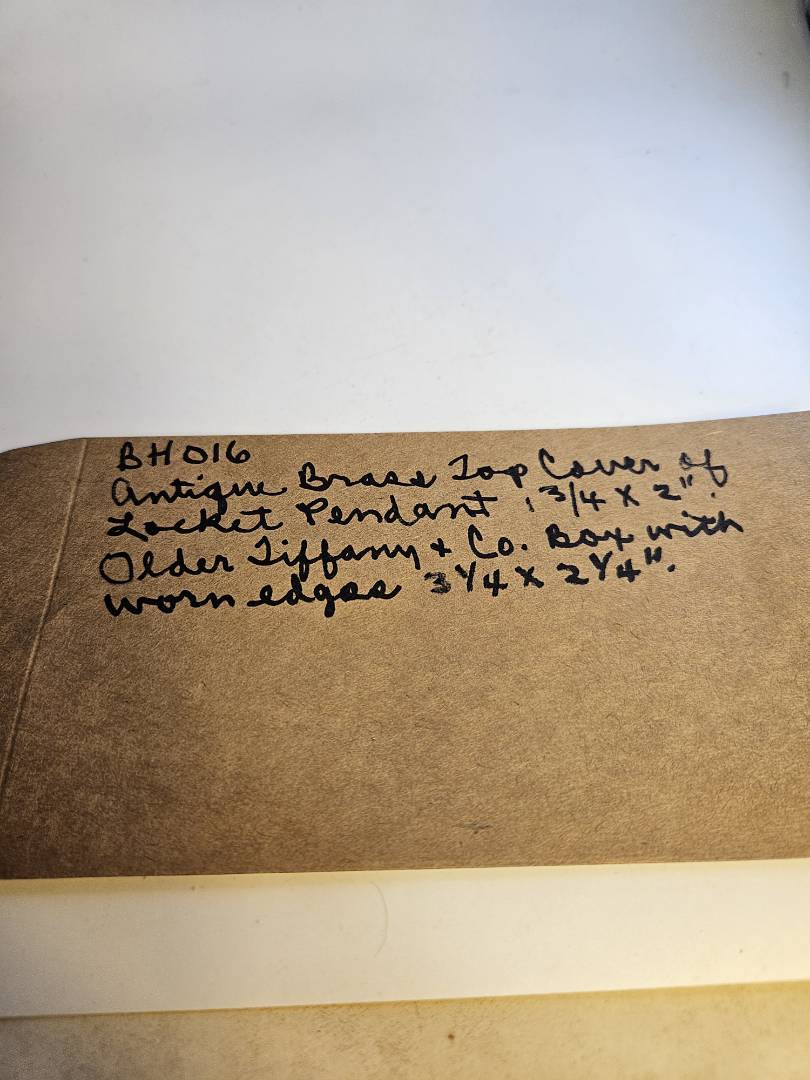 BH016
Antique Brass Top Cover of
Locket Pendant 1 3/4 X 2".
Older Tiffany + Co. Box with
worn edges 3 1/4 X 2 1/4".